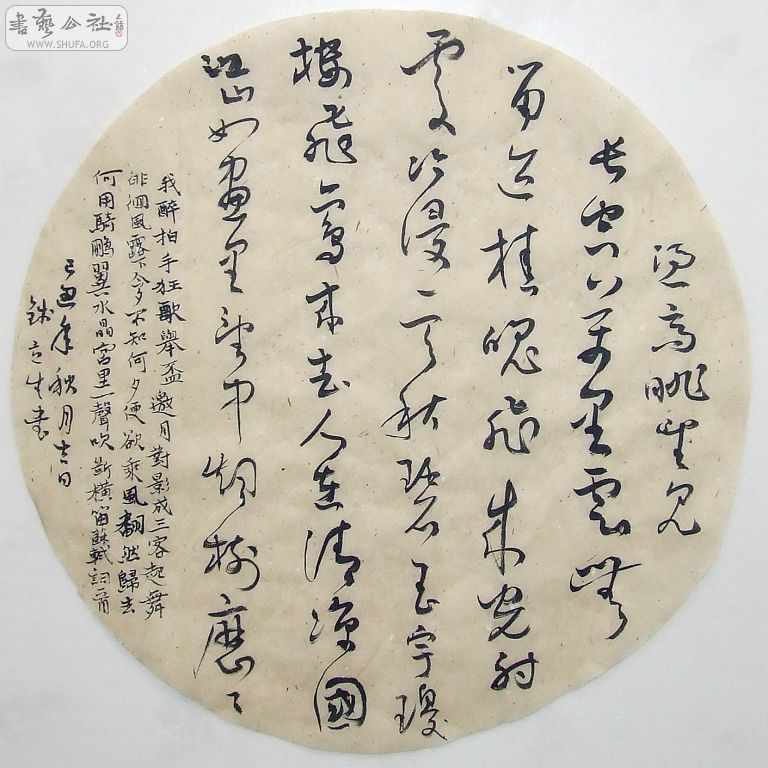 憑高眺望見
長空万里雲無
留迹桂魄飛來光射
處冷浸一天秋碧玉宇瓊
樓飛鸞來去人在清凉國
江山如畫里望中烟樹歷々
我醉拍手狂歌舉盃邀月對影成三客起舞
徘徊風露下今夕不知何夕便欲乘風翻然歸去
何用騎鵬翼水晶宮里一聲吹斷橫笛蘇軾詞一首
己丑年秋月吉日
生書
書藝公社
WWW.SHUFA.ORG